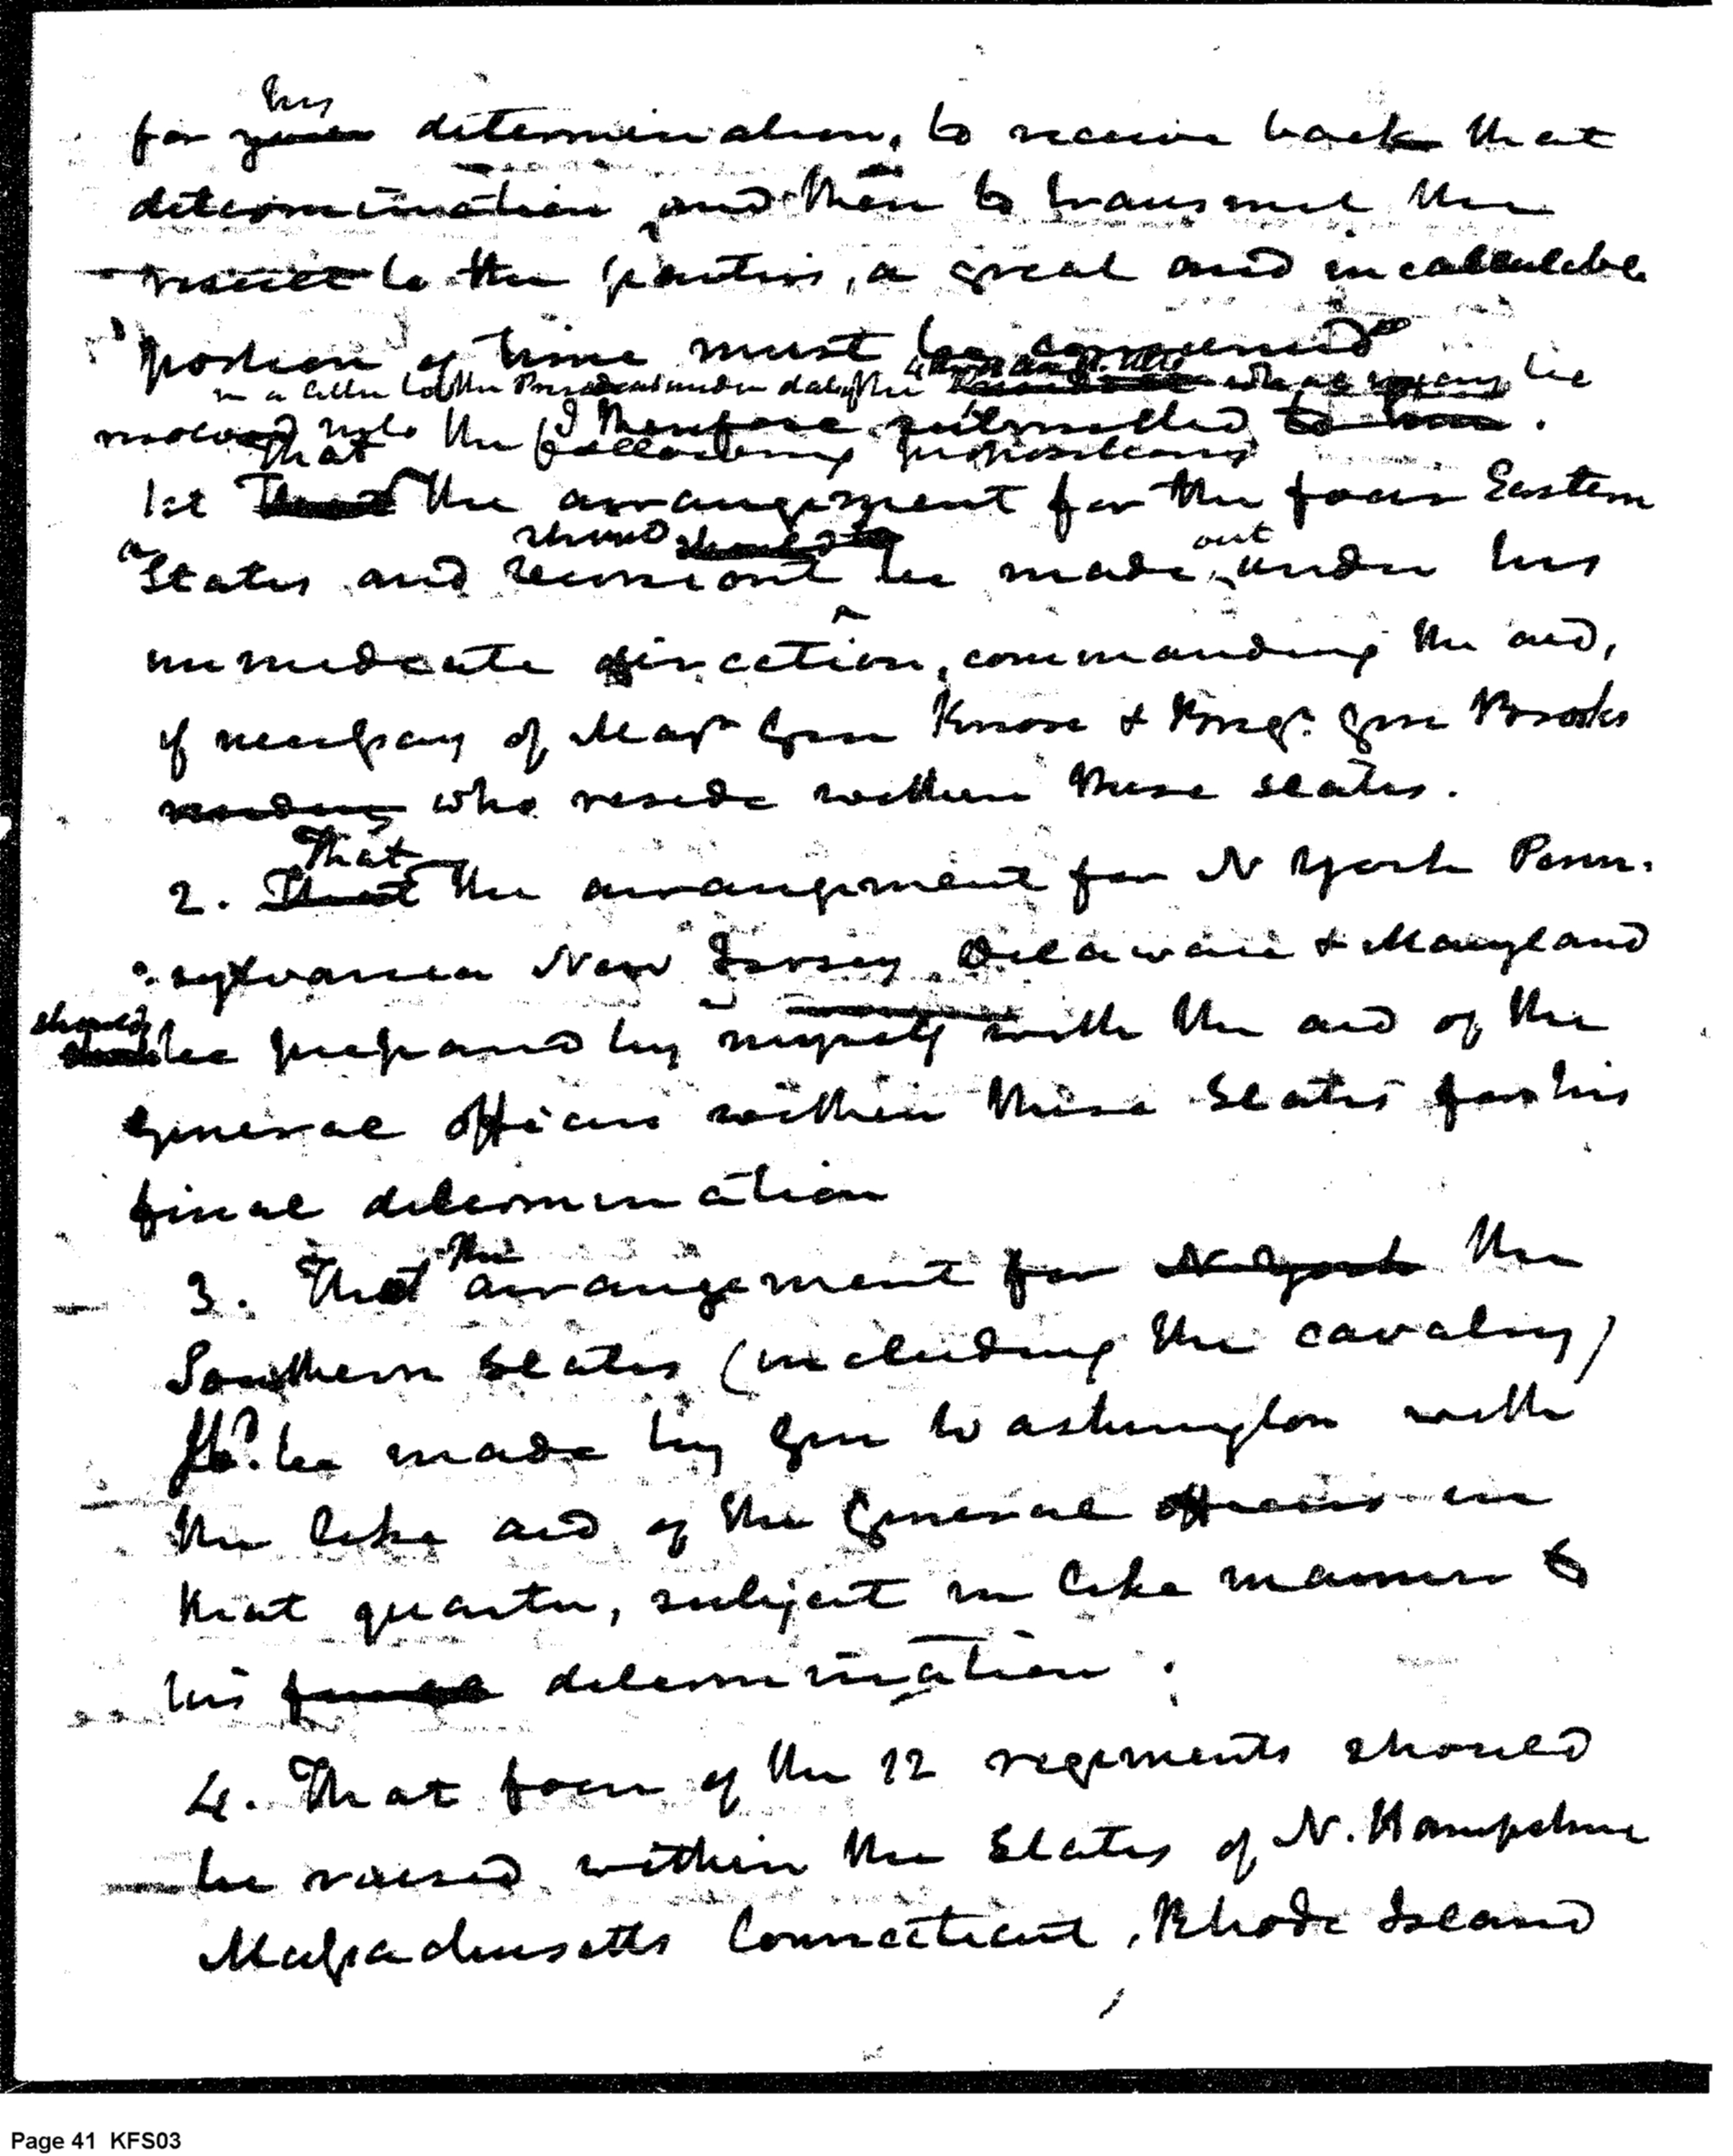 his
for your determination, to receive back that
determination, and then to transmit the
result to the parties, a great and incalculable
portion of time must be consumed
in a letter to the President under date of the what may be
resolved into the I therefore submitted to him.
following propositions
That
1st That the arrangement for the four Eastern
should should be out
States and Vermont be made under his
immediate direction, commanding the aid,
if necessary of Majr Gen Knox & Brigr. Gen Brooks
residing who reside within these states.
That
2. That the arrangement for N York Penn-
-sylvania New Jersey Delaware & Maryland
should
should be prepared by myself with the aid of the
General officers within these States for his
final determination
the
3. That arrangement for N York the
Southern States (including the cavalry)
shd. be made by Gen Washington with
the like aid of the General officers in
that quarter, subject in like manner to
his final determination.
4. That four of the 12 regiments should
be raised within the States of N. Hampshire
Massachusetts Connecticut, Rhode Island
Page 41 KFS03